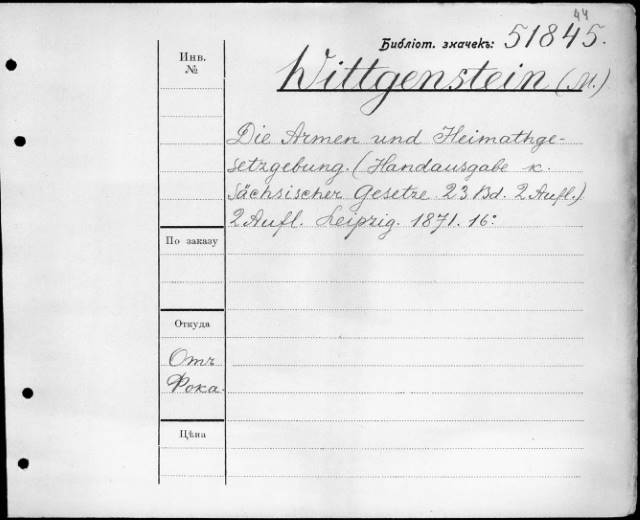 44
Библіот. значекъ: 51845.
Инв.
№
Wittgenstein (M.)
Die Armen und Heimathge-
setzgebung. (Handausgabe k.
sächsischer Gesetze 23 Bd. 2 Aufl.)
2 Aufl. Leipzig. 1871. 16:
По заказу
Откуда
Отъ
Фока.
Цѣна